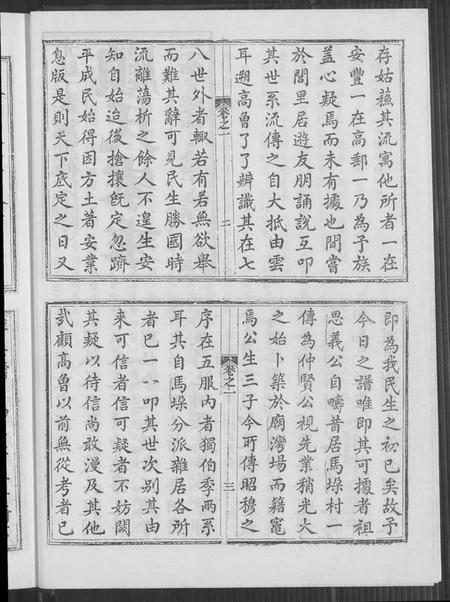 存姑蘓其流寓他所者一在
安豐一在高郵一乃為予族
蓋心疑焉而未有據也間嘗
於閭里居遊友朋誦說互叩
其世系流傳之自大抵由雲
耳遡高曾了了辨識其在七
卷之一
二
八世外者輙若有若無欲舉
而難其辭可見民生勝國時
流離蕩析之餘人不遑生安
知自始迨後搶攘旣定忽躋
平成民始得因方土著安業
息版是則天下底定之日又
即為我民生之初已矣故予
今日之譜唯即其可據者祖
思義公自疇昔居馬垛村一
傳為仲賢公視先業稍光大
之始卜築於廟灣場而籍竈
焉公生三子今所傳昭穆之
卷之一
三
序在五服內者獨伯季兩系
耳其自馬垛分派雜居各所
者已一一叩其世次別其由
來可信者信可疑者不妨闕
其疑以待信尚敢漫及其他
㢤顧高曾以前無從考者已